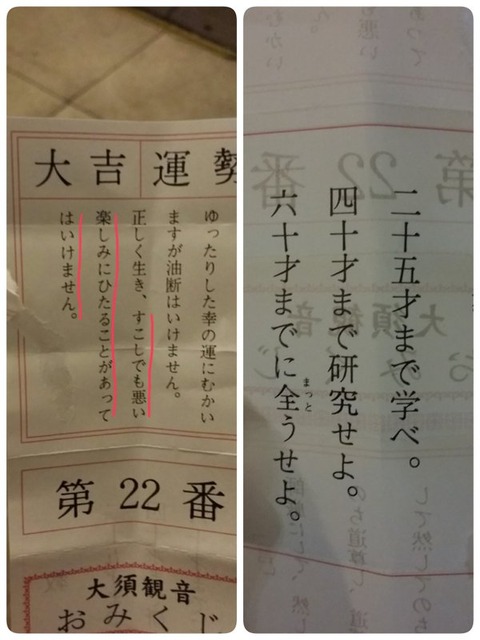 大吉運勢
ゆったりした幸の運にむかい
ますが油断はいけません。
正しく生き、すこしでも悪い
楽しみにひたることがあって
はいけません。
第22番
大須観音
おみくじ
二十五才まで学べ。
四十才まで研究せよ。
六十才までに全うせよ。
まっと